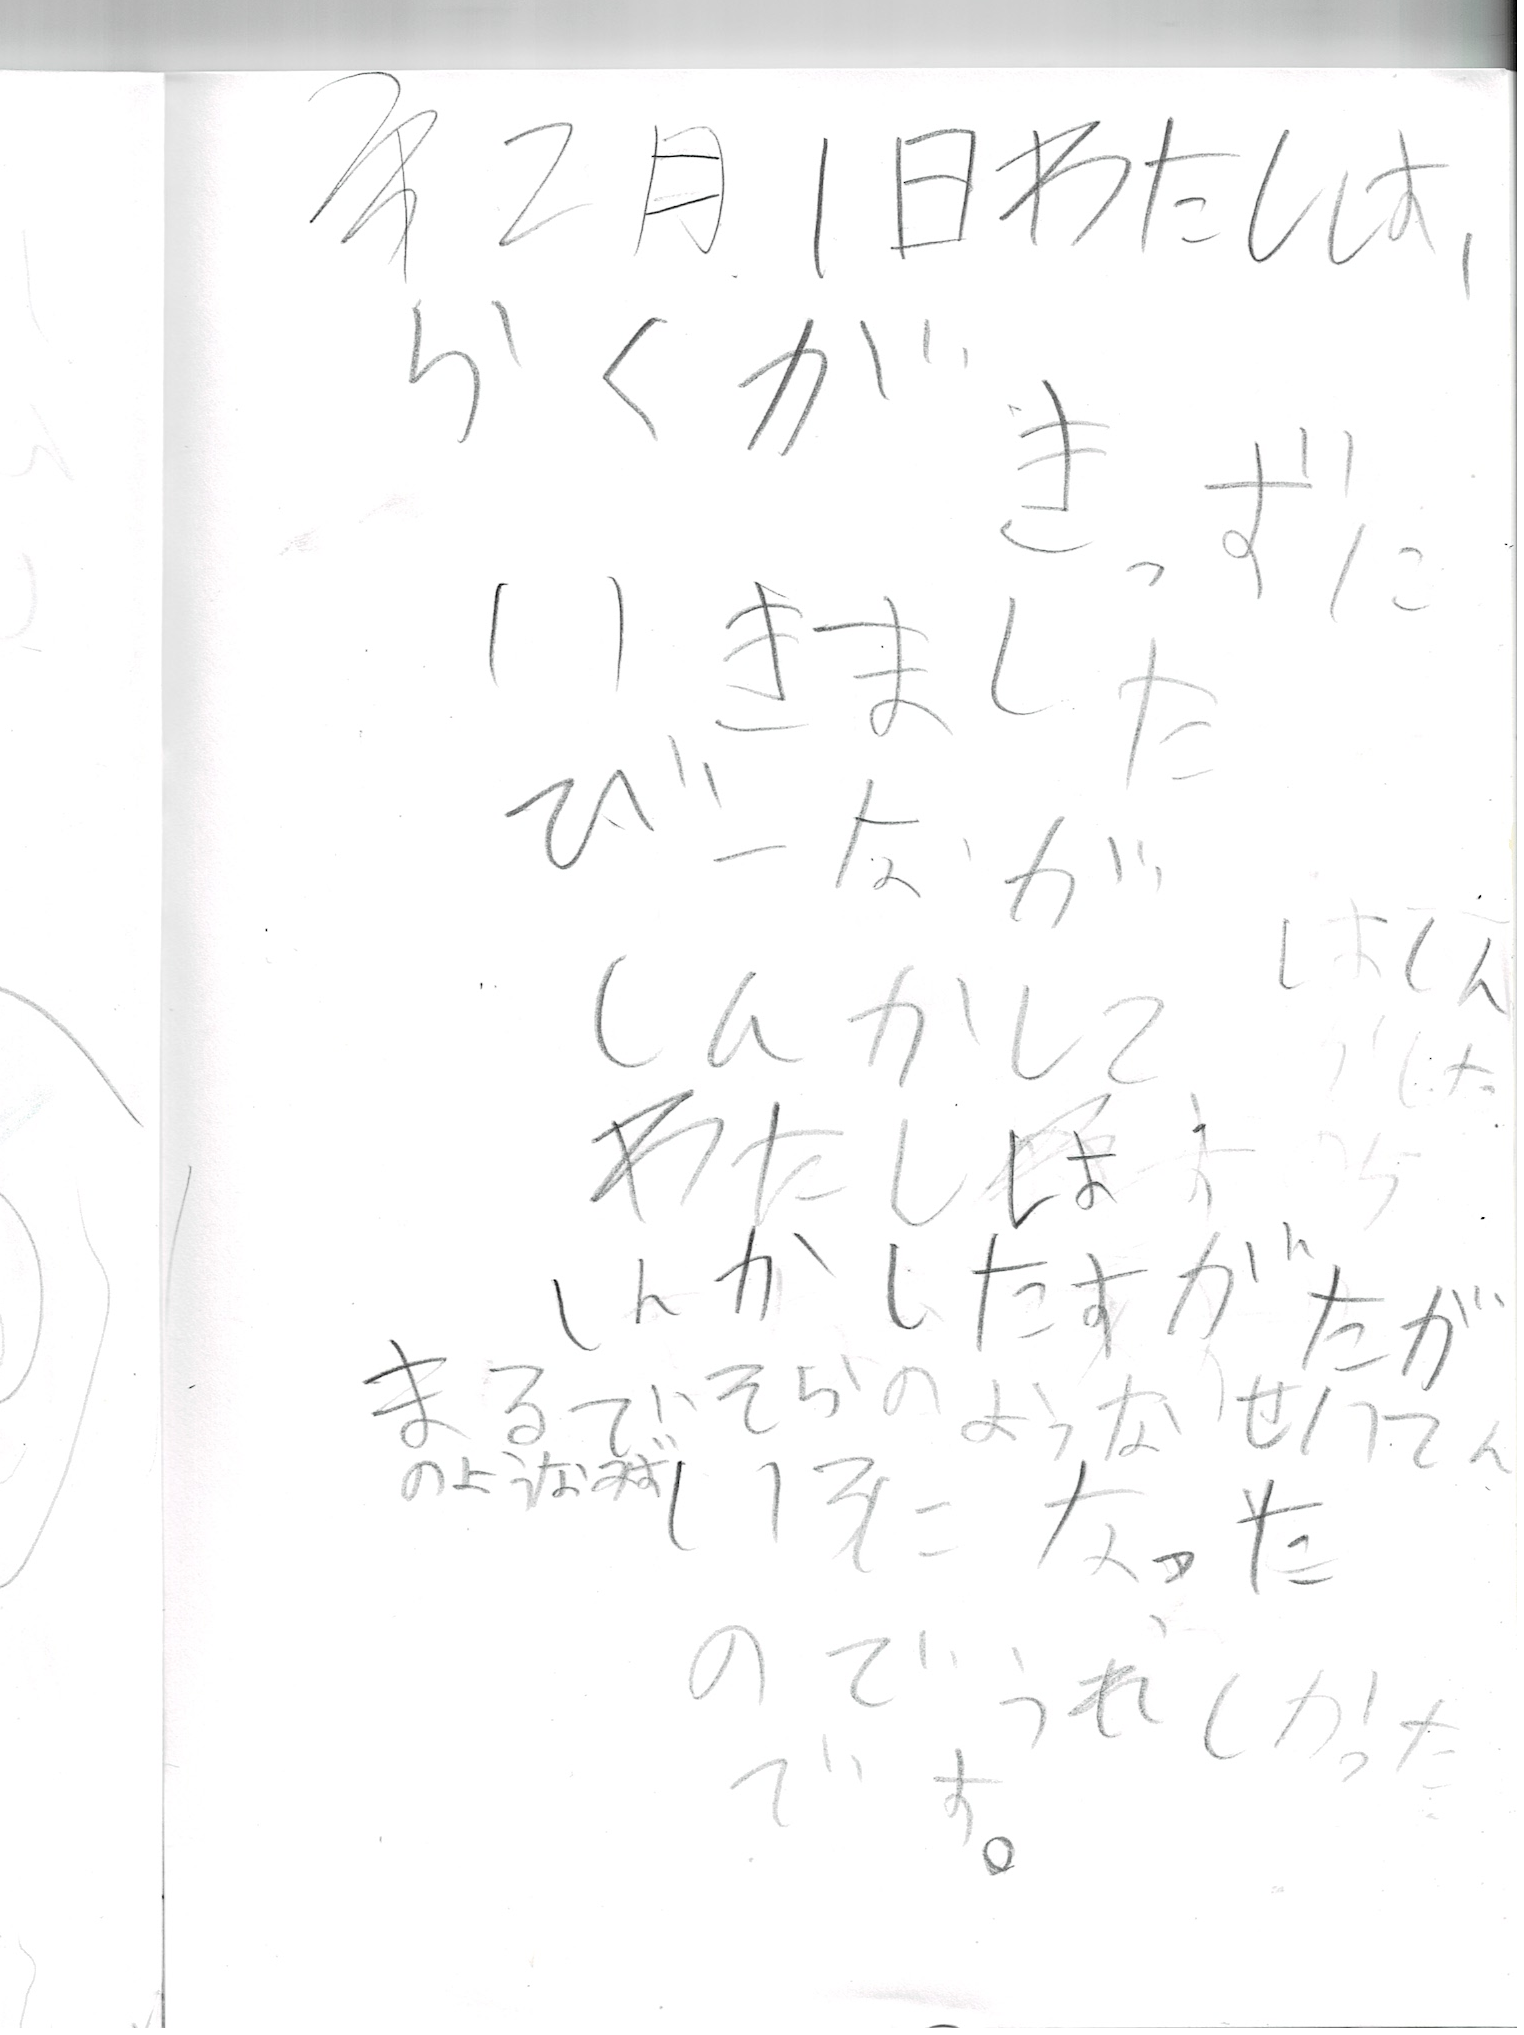 2月1日わたしは、
らくがきっずに
いきました
びーなが
しんかして
わたしは
しんかしたすがたが
まるでそらのようなせいてん
のようなみずいろに なった
のでうれしかった
です。